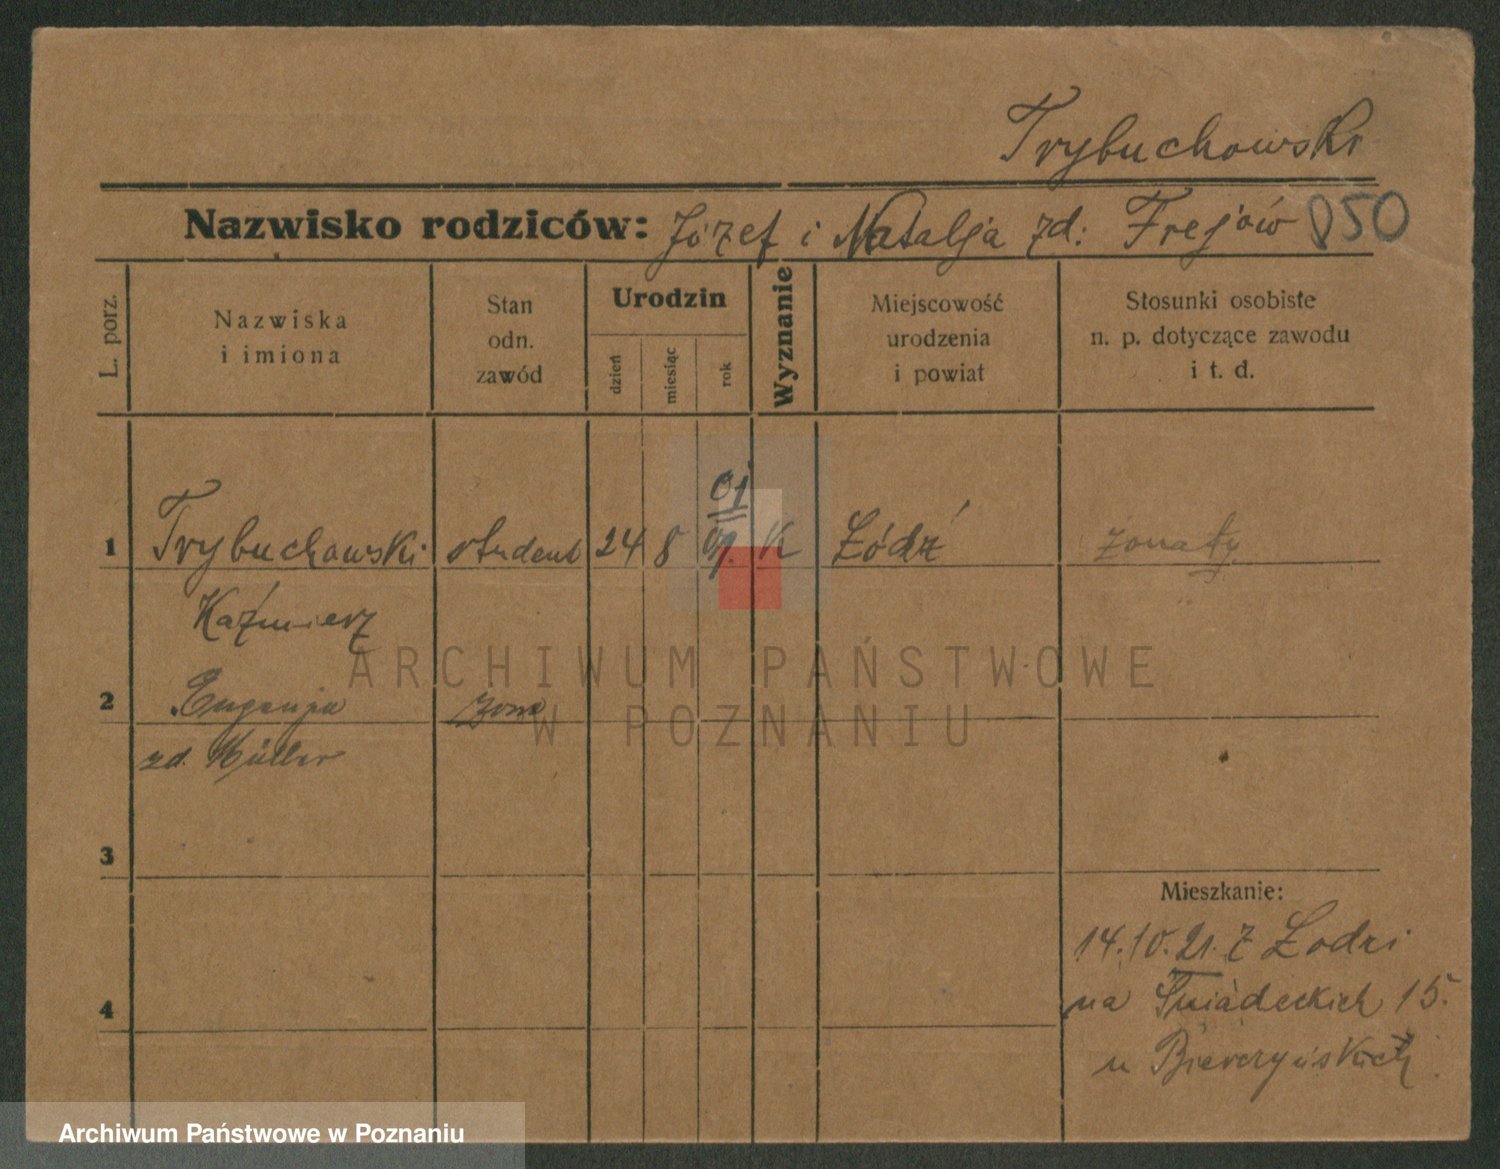 Trybuchowski
Nazwisko rodziców: Józef i Natalja zd: Frejów 850
L. porz.
Nazwiska
i imiona
Stan
odn.
zawód
Urodzin
dzień
miesiąc
rok
Wyznanie
Miejscowość
urodzenia
i powiat
Stosunki osobiste
n. p. dotyczące zawodu
i t. d.
01
1 Trybuchowski student 24 8 K Łódź żonaty
Kaźmierz
2 Eugenja żona
zd. Müller
3
Mieszkanie:
14.10.21. z Łodzi
4 na Śniadeckich 15.
u
ARCHIWUM PAŃSTWOWE
W POZNANIU
Archiwum Państwowe w Poznaniu